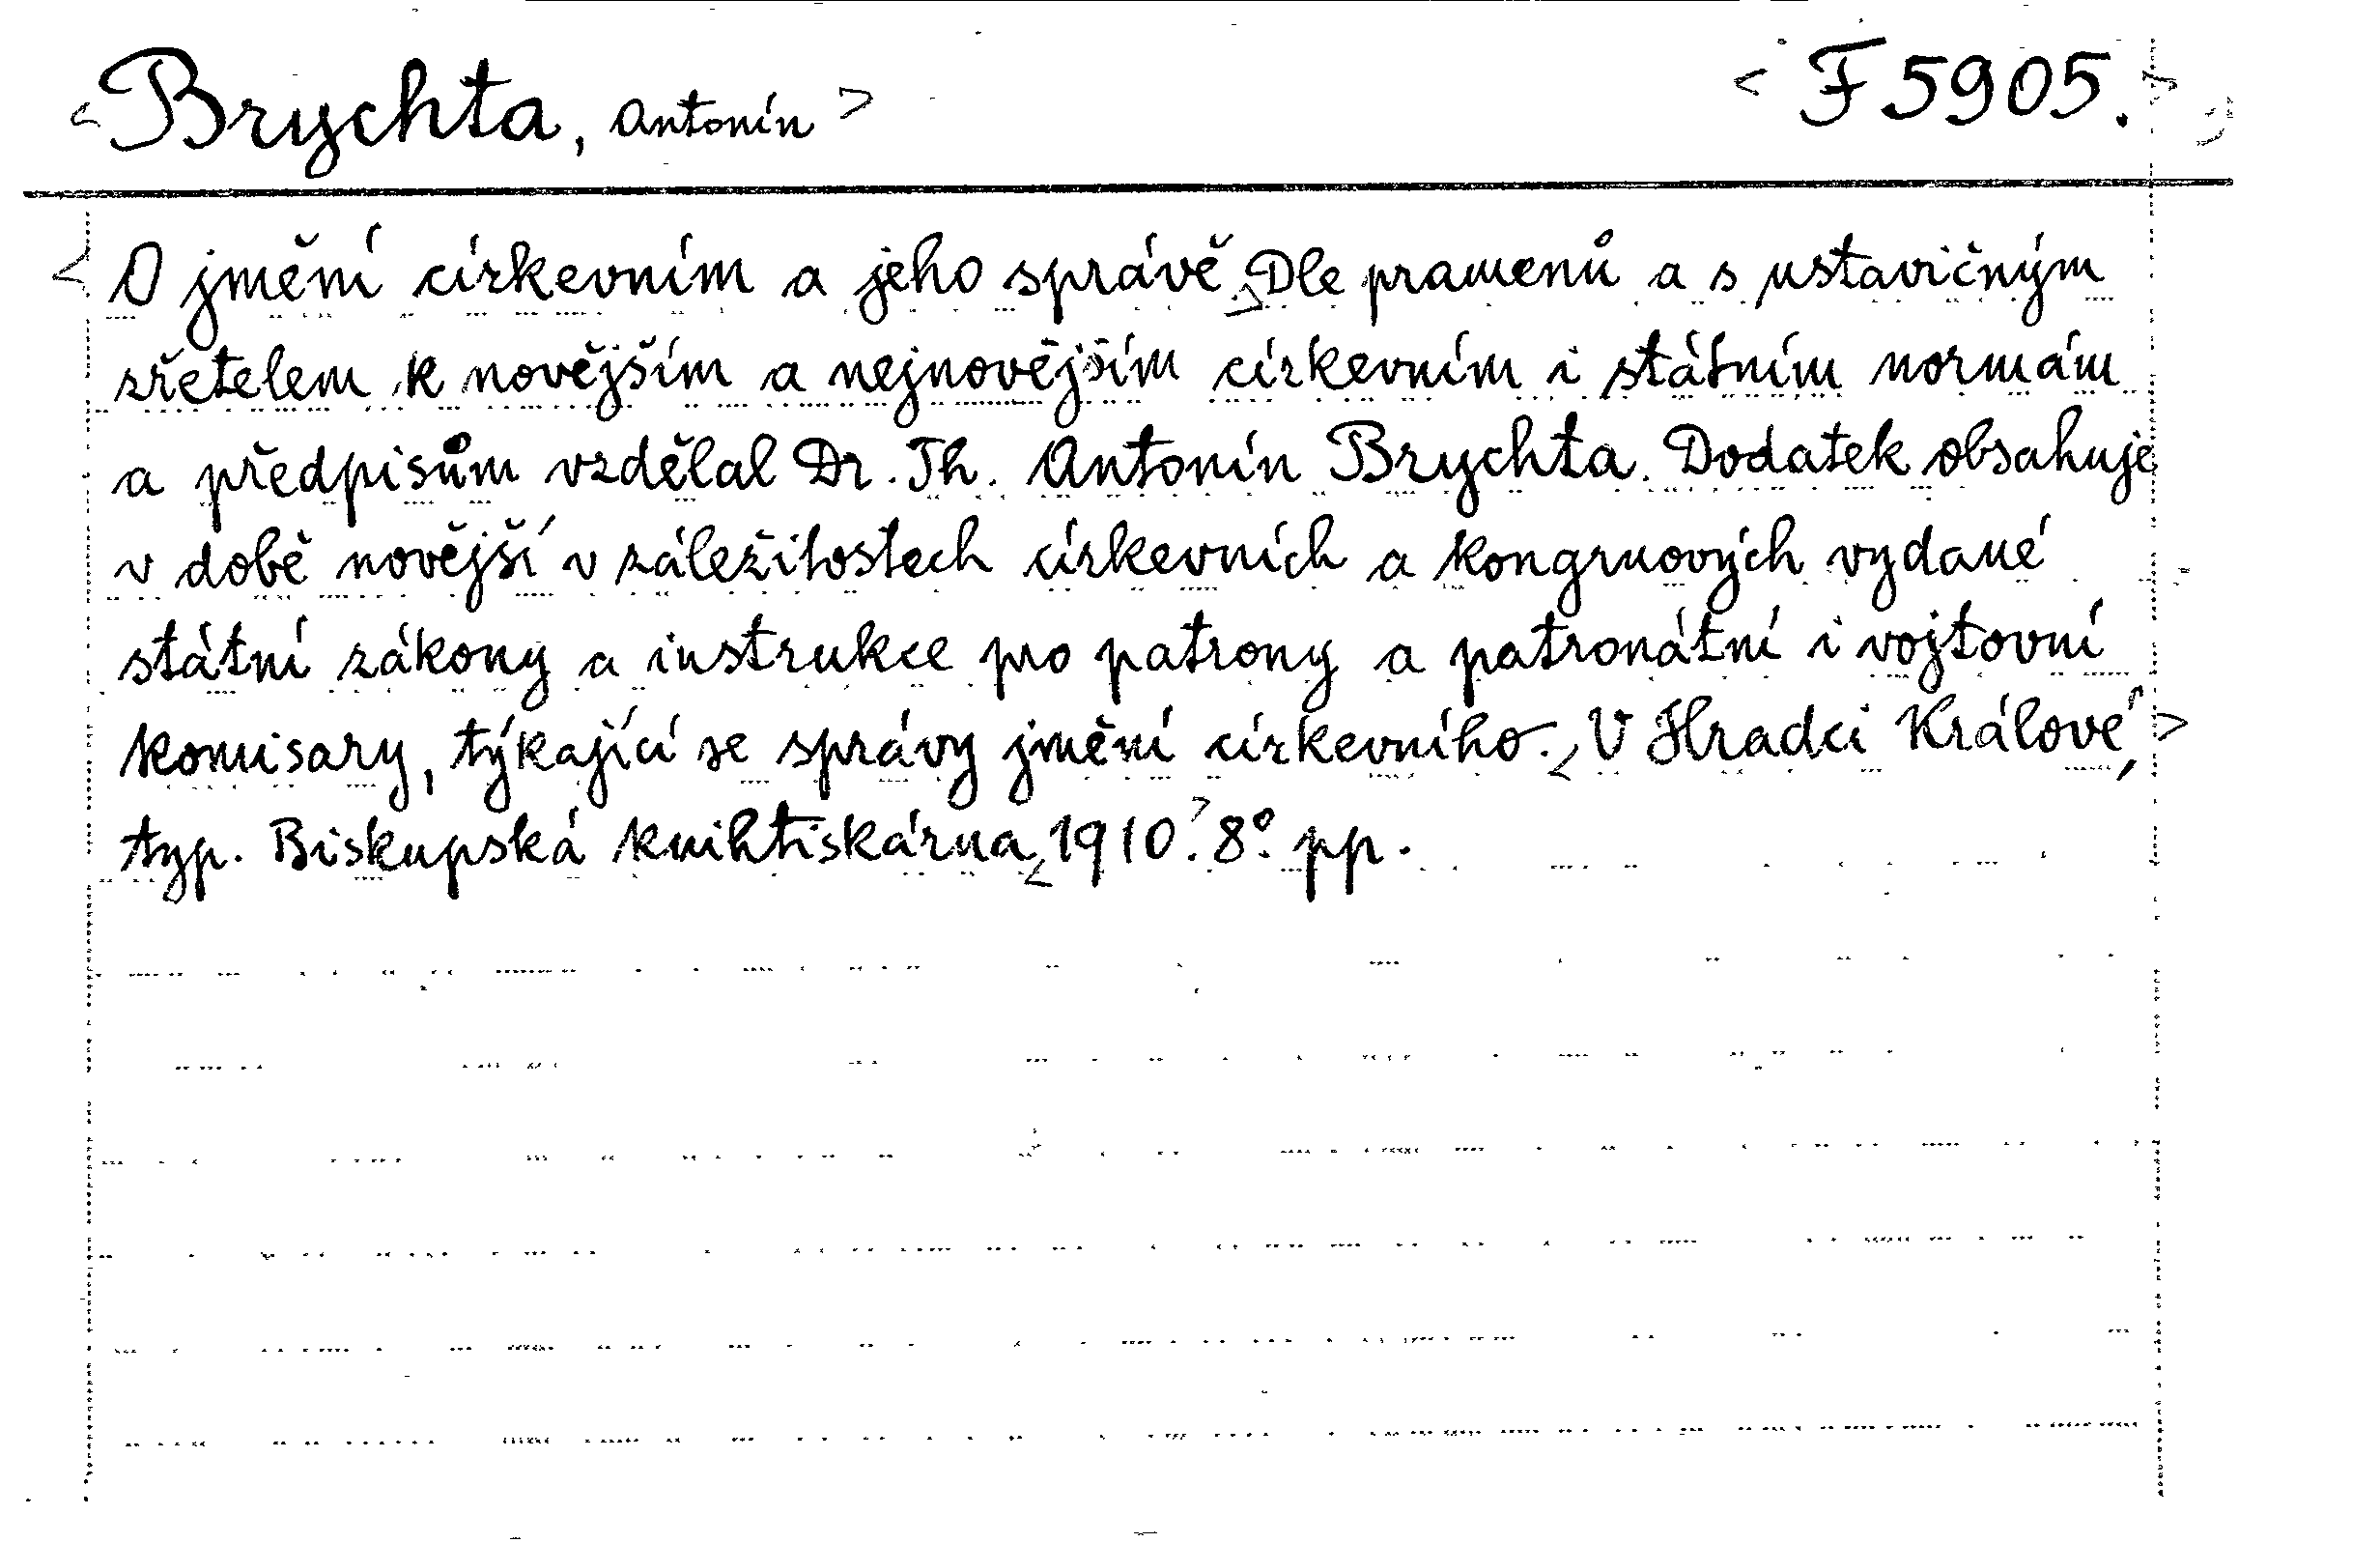 <Brychta, Antonín> <F 5905.>
<O jmění církevním a jeho správě.> Dle pramenů a s ustavičným
zřetelem k novějším a nejnovějším církevním i státním normám
a předpisům vzdělal Dr. Th. Antonín Brychta. Dodatek obsahuje
v době novější v záležitostech církevních a kongruových vydané
státní zákony a instrukce pro patrony a patronátní i vojtovní
komisary, týkající se správy jmění církevního. <V Hradci Králové,>
typ. Biskupská knihtiskárna, <1910.> 8°. pp.